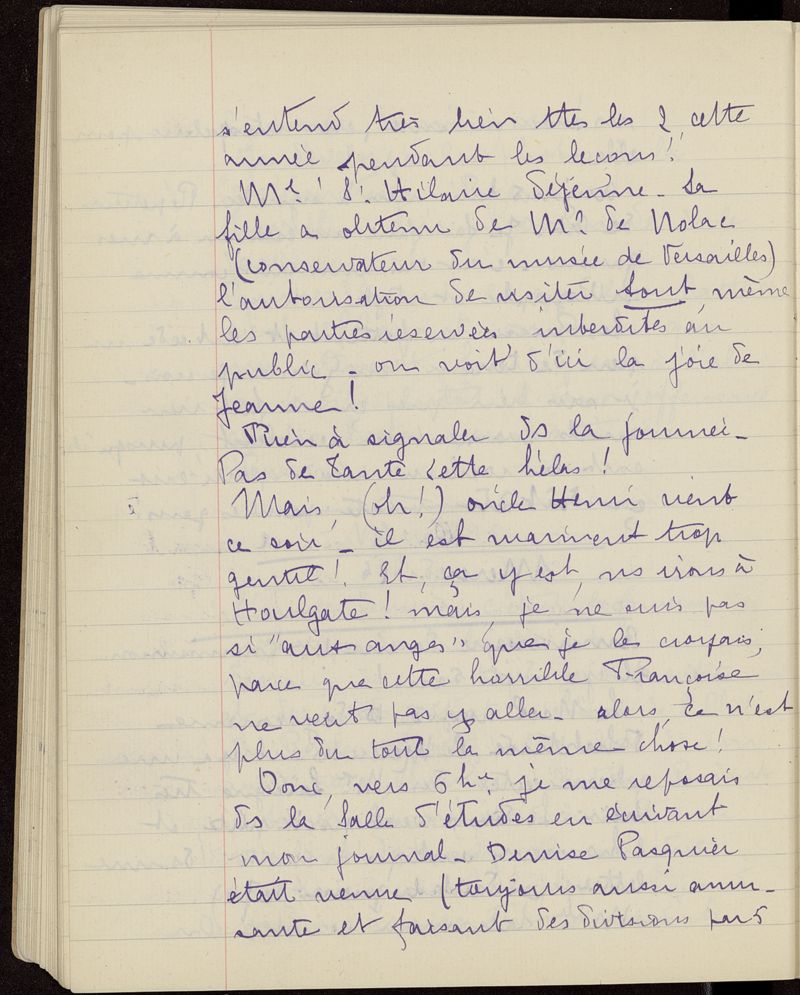 s'entend très bien ttes les 2, cette
année pendant les leçons!
Me St Hilaire déjeûne _ Sa
fille a obtenu de Mr de Nolac
(conservateur du musée de Versailles)
l'autorisation de visiter tout, même
les parties réservées interdites au
public _ on voit d'ici la joie de
Jeanne!
Rien à signaler ds la journée _
Pas de Tante cette hélas!
Mais, (oh!) oncle Henri vient
ce soir _ il est vraiment trop
gentil! Et, ça y est, ns irons à
Houlgate! mais, je ne suis pas
si "aux anges" que je le croyais,
parce que cette horrible Françoise
ne veut pas y aller _ alors, ce n'est
plus du tout la même chose!
Donc, vers 6 hes je me reposais
ds la Salle d'études en écrivant
mon journal _ Denise Pasquier
était venue (toujours aussi amu-
sante et faisant des divisions par 5